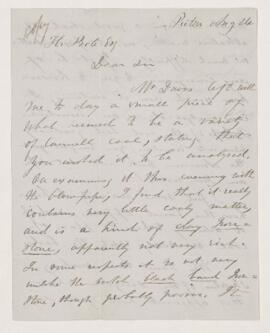 Copy
Pictou Aug 26
H Poole Esq
Dear Sir
Mr Dawson left with
me to day a small piece of
what seemed to be a variety
of cannell coal, stating that
you wished it to be analysed.
On examining it this evening with
the blowpipe, I find that it really
contains very little coaly matter,
and is a kind of clay Iron-
stone, apparently not very rich.
In some respects it is not very
unlike the Scotch black band Iron
Stone, though probably poorer. It